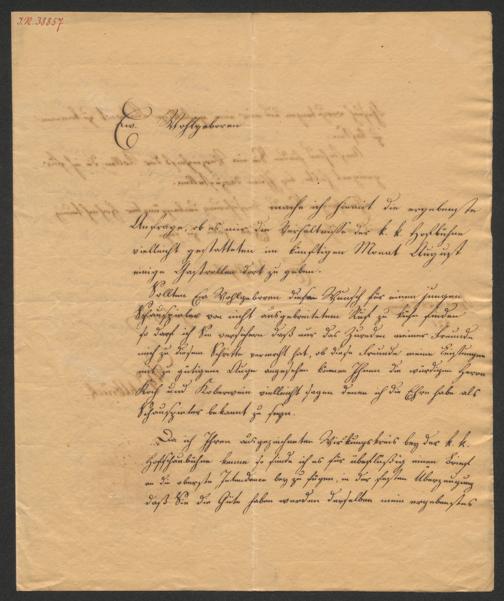 I.N. 38857
Ew. Wohlgeboren
mache ich hiemit die ergebenste
Anfrage, ob es mir die Verhältnisse der k. k. Hofbühne
vielleicht gestatteten im künftigen Monat August
einige Gastrollen dort zu geben.
Sollten Ew Wohlgeboren diesen Wunsch für einen jungen
Schauspieler von nicht ausgebreitetem Ruf zu kühn finden
so darf ich Sie versichern daß nur das Zureden meiner Freunde
mich zu diesem Schritte vermocht hat, ob diese Freunde meine Leistungen
mit zu gütigem Auge angesehen können Ihnen die würdigen Herrn
Koch und Koberwein vielleicht sagen denen ich die Ehre habe als
Schauspieler bekannt zu seyn.
Da ich Ihren ausgezeichneten Wirkungskreis bey der k. k.
Hofschaubühne kenne so finde ich es für überflüssig einen Brief
an die oberste Intendance bey zu fügen, in der festen Überzeugung
daß Sie die Güte haben werden derselben mein ergebenstes